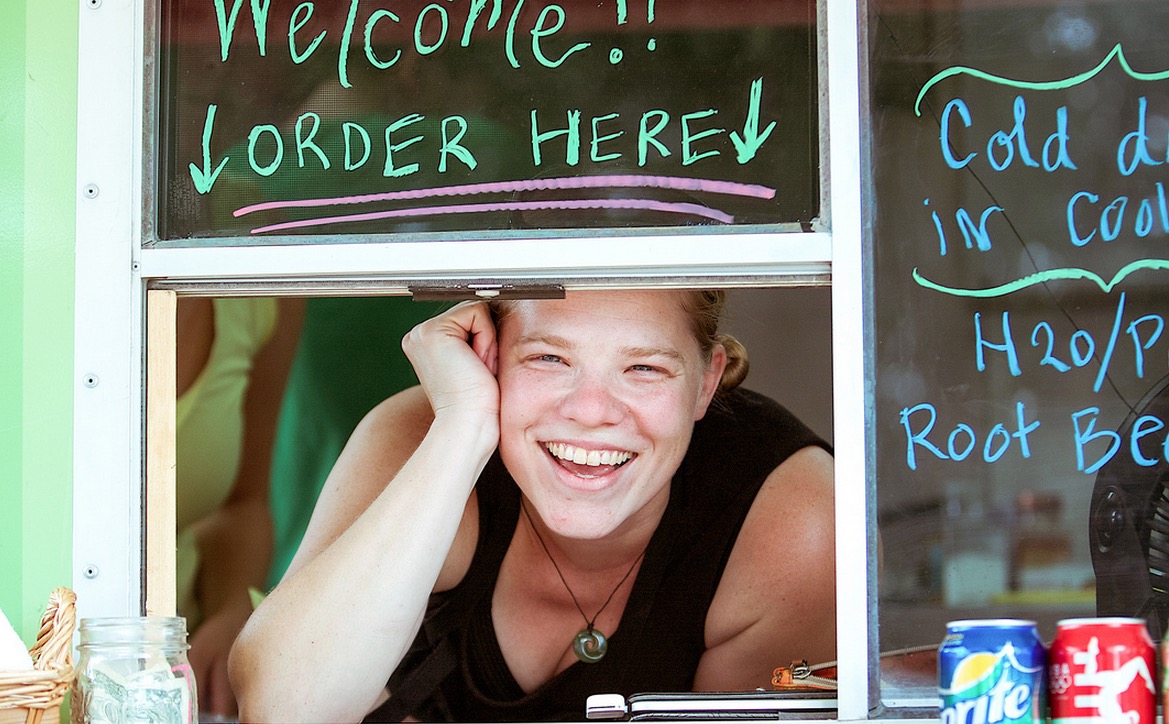 Welcome!!
↓ORDER HERE↓
Cold d
in Cool
H2O/P
Root Bee
Sprite